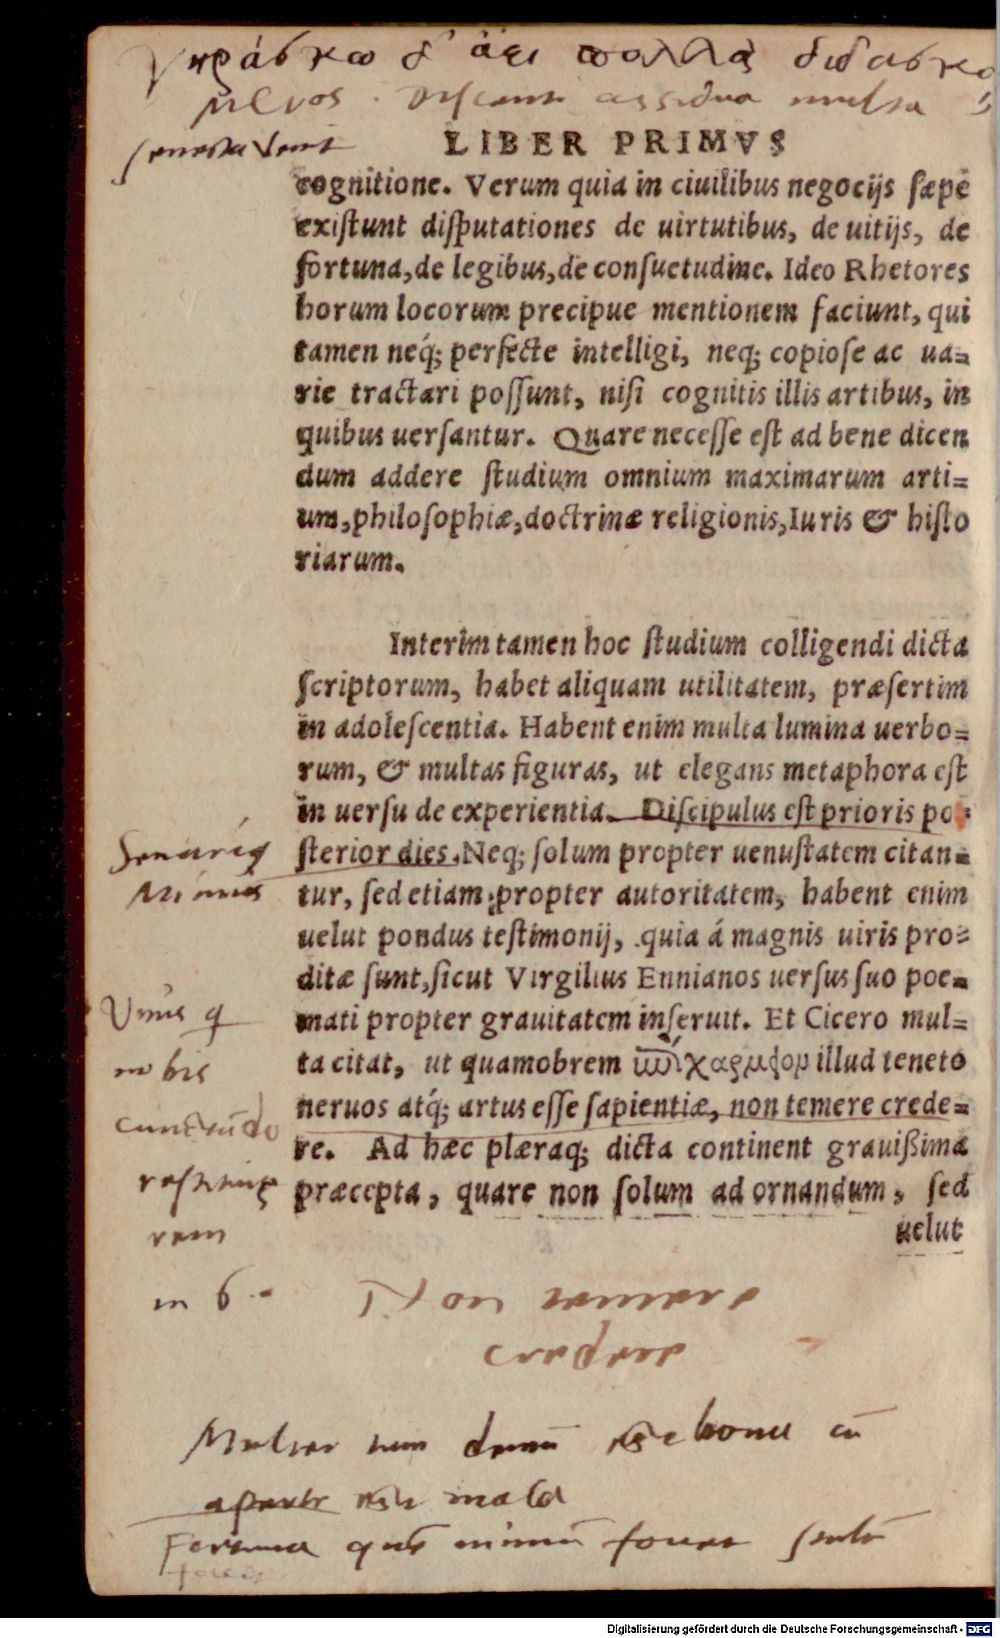 Γηράσκω δ' ἀεὶ πολλὰ διδασκο
μενος. Discens assidua multa
senecta venit
LIBER PRIMVS
cognitione. Verum quia in ciuilibus negocijs sæpe
existunt disputationes de uirtutibus, de uitijs, de
fortuna, de legibus, de consuetudine. Ideo Rhetores
horum locorum precipue mentionem faciunt, qui
tamen neq́; perfecte intelligi, neq; copiose ac ua=
rie tractari possunt, nisi cognitis illis artibus, in
quibus uersantur. Quare necesse est ad bene dicen
dum addere studium omnium maximarum arti=
um, philosophiæ, doctrinæ religionis, Iuris & histo
riarum.
Interim tamen hoc studium colligendi dicta
scriptorum, habet aliquam utilitatem, præsertim
in adolescentia. Habent enim multa lumina uerbo=
rum, & multas figuras, ut elegans metaphora est
in uersu de experientia. Discipulus est prioris po=
sterior dies. Neq; solum propter uenustatem citan=
tur, sed etiam propter autoritatem, habent enim
uelut pondus testimonij, quia á magnis uiris pro=
ditæ sunt, sicut Virgilius Ennianos uersus suo poe=
mati propter grauitatem inseruit. Et Cicero mul=
ta citat, ut quamobrem ἐπίχαρμον illud teneto
neruos atq́; artus esse sapientiæ, non temere crede=
re. Ad hæc plæraq; dicta continent grauißima
præcepta, quare non solum ad ornandum, sed
uelut
Senarius
Mimus
Vnus q
nobis
cunctando
restituit
rem
in 6.
Non temere
credere
Mulier tum demum est bona cum
aperte est mala
Fortuna quem nimium fouet stultum